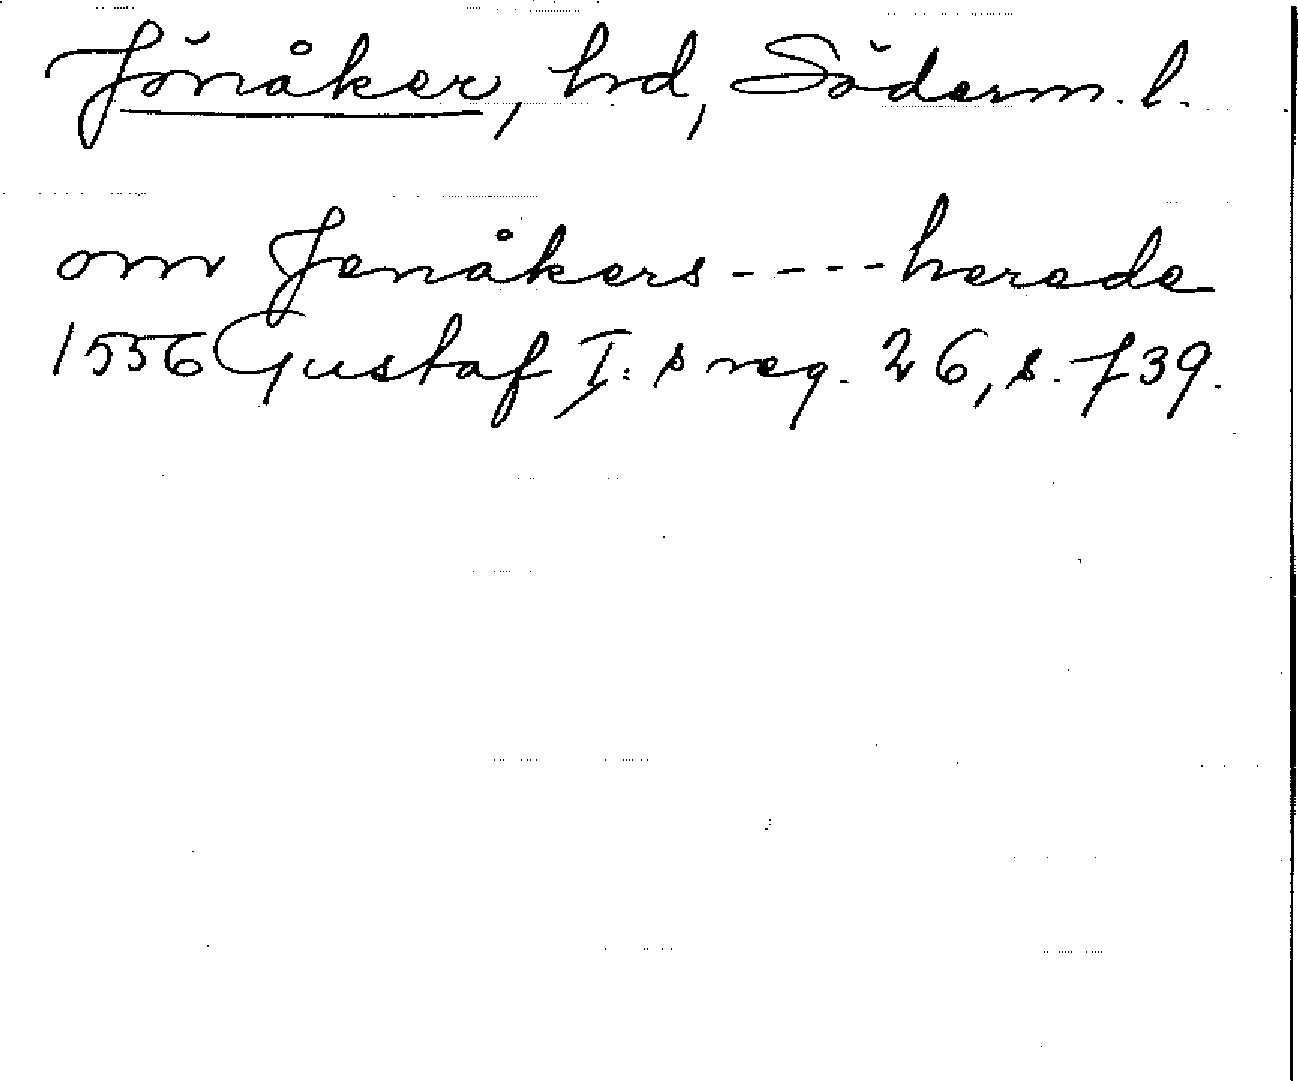 Jönåker, hd, Söderm. l.
om Jenåkers ---- herade
1556 Gustaf I:s reg. 26, s. 739.